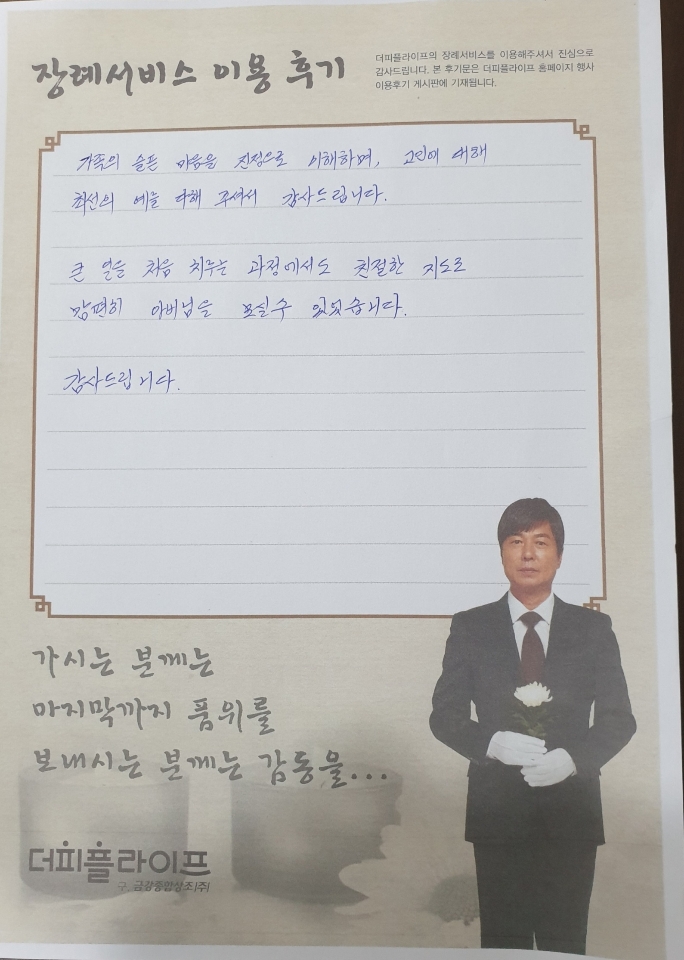 장례서비스 이용 후기
더피플라이프의 장례서비스를 이용해주셔서 진심으로
감사드립니다. 본 후기문은 더피플라이프 홈페이지 행사
이용후기 게시판에 기재됩니다.
가족의 슬픈 마음을 진정으로 이해하며, 고인에 대해
최선의 예를 다해 주셔서 감사드립니다.
큰 일을 처음 치루는 과정에서도 친절한 지도로
맘편히 아버님을 모실수 있었습니다.
감사드립니다.
가시는 분께는
마지막까지 품위를
보내시는 분께는 감동을...
더피플라이프
구. 금강종합상조(주)